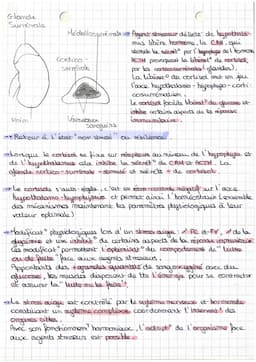 Glande
Surrénale
Médullosurrénale
Cortico-
surrénale
Rein
Vaisseaux
sanguins
Agent stresseur
libère hormone, la CRH, qui
stimule la sécrét° par l'hypophyse de l'hormone
ACTH provoquant la libérat° de cortisol
par les corticosurrénales (glandes).
La libérat° de cortisol met en jeu
l'axe hypothalamo-hypophyso-cortico
Le cortisol facilite libérat° du glucose et
inhibe certains aspects de la réponse
→ Retour à l'état "non stressé" ou résilience
Lorsque le cortisol se fixe sur récepteurs au niveau de l'hypophyse et
de l'hypothalamus cela inhibe la sécrét° de CRH et ACTH. La
glande cortico-surrénale et sécrète de cortisol.
Le cortisol s'auto-régule, c'est un rétro-contrôle négatif sur l'axe
hypothalamo-hypophysaire et permet ainsi l'homéostasie (ensemble
des mécanismes maintenant les paramètres physiologiques à leur
valeur optimale)
Modificat° physiologiques lors d'un stress aigu : FC et FV, de la
glycémie et une inhibit° de certains aspects de la réponse immunitaire
Ces modificat° permettent l'adaptabilité du comportement de "lutte
ou de fuite" face aux agents stresseurs.
Apportant des quantités de sang oxygéné avec du
glucose, les muscles disposent de l'énergie pour se contracter
et assurer la "lutte ou la fuite".
Le stress aigu est contrôlé par le système nerveux et hormonal
constituant un système complexe coordonnant l'intensité des
organes cibles.
Avec son fonctionnement harmonieux, l'adapt° de l'organisme face
aux agents stresseurs est possible